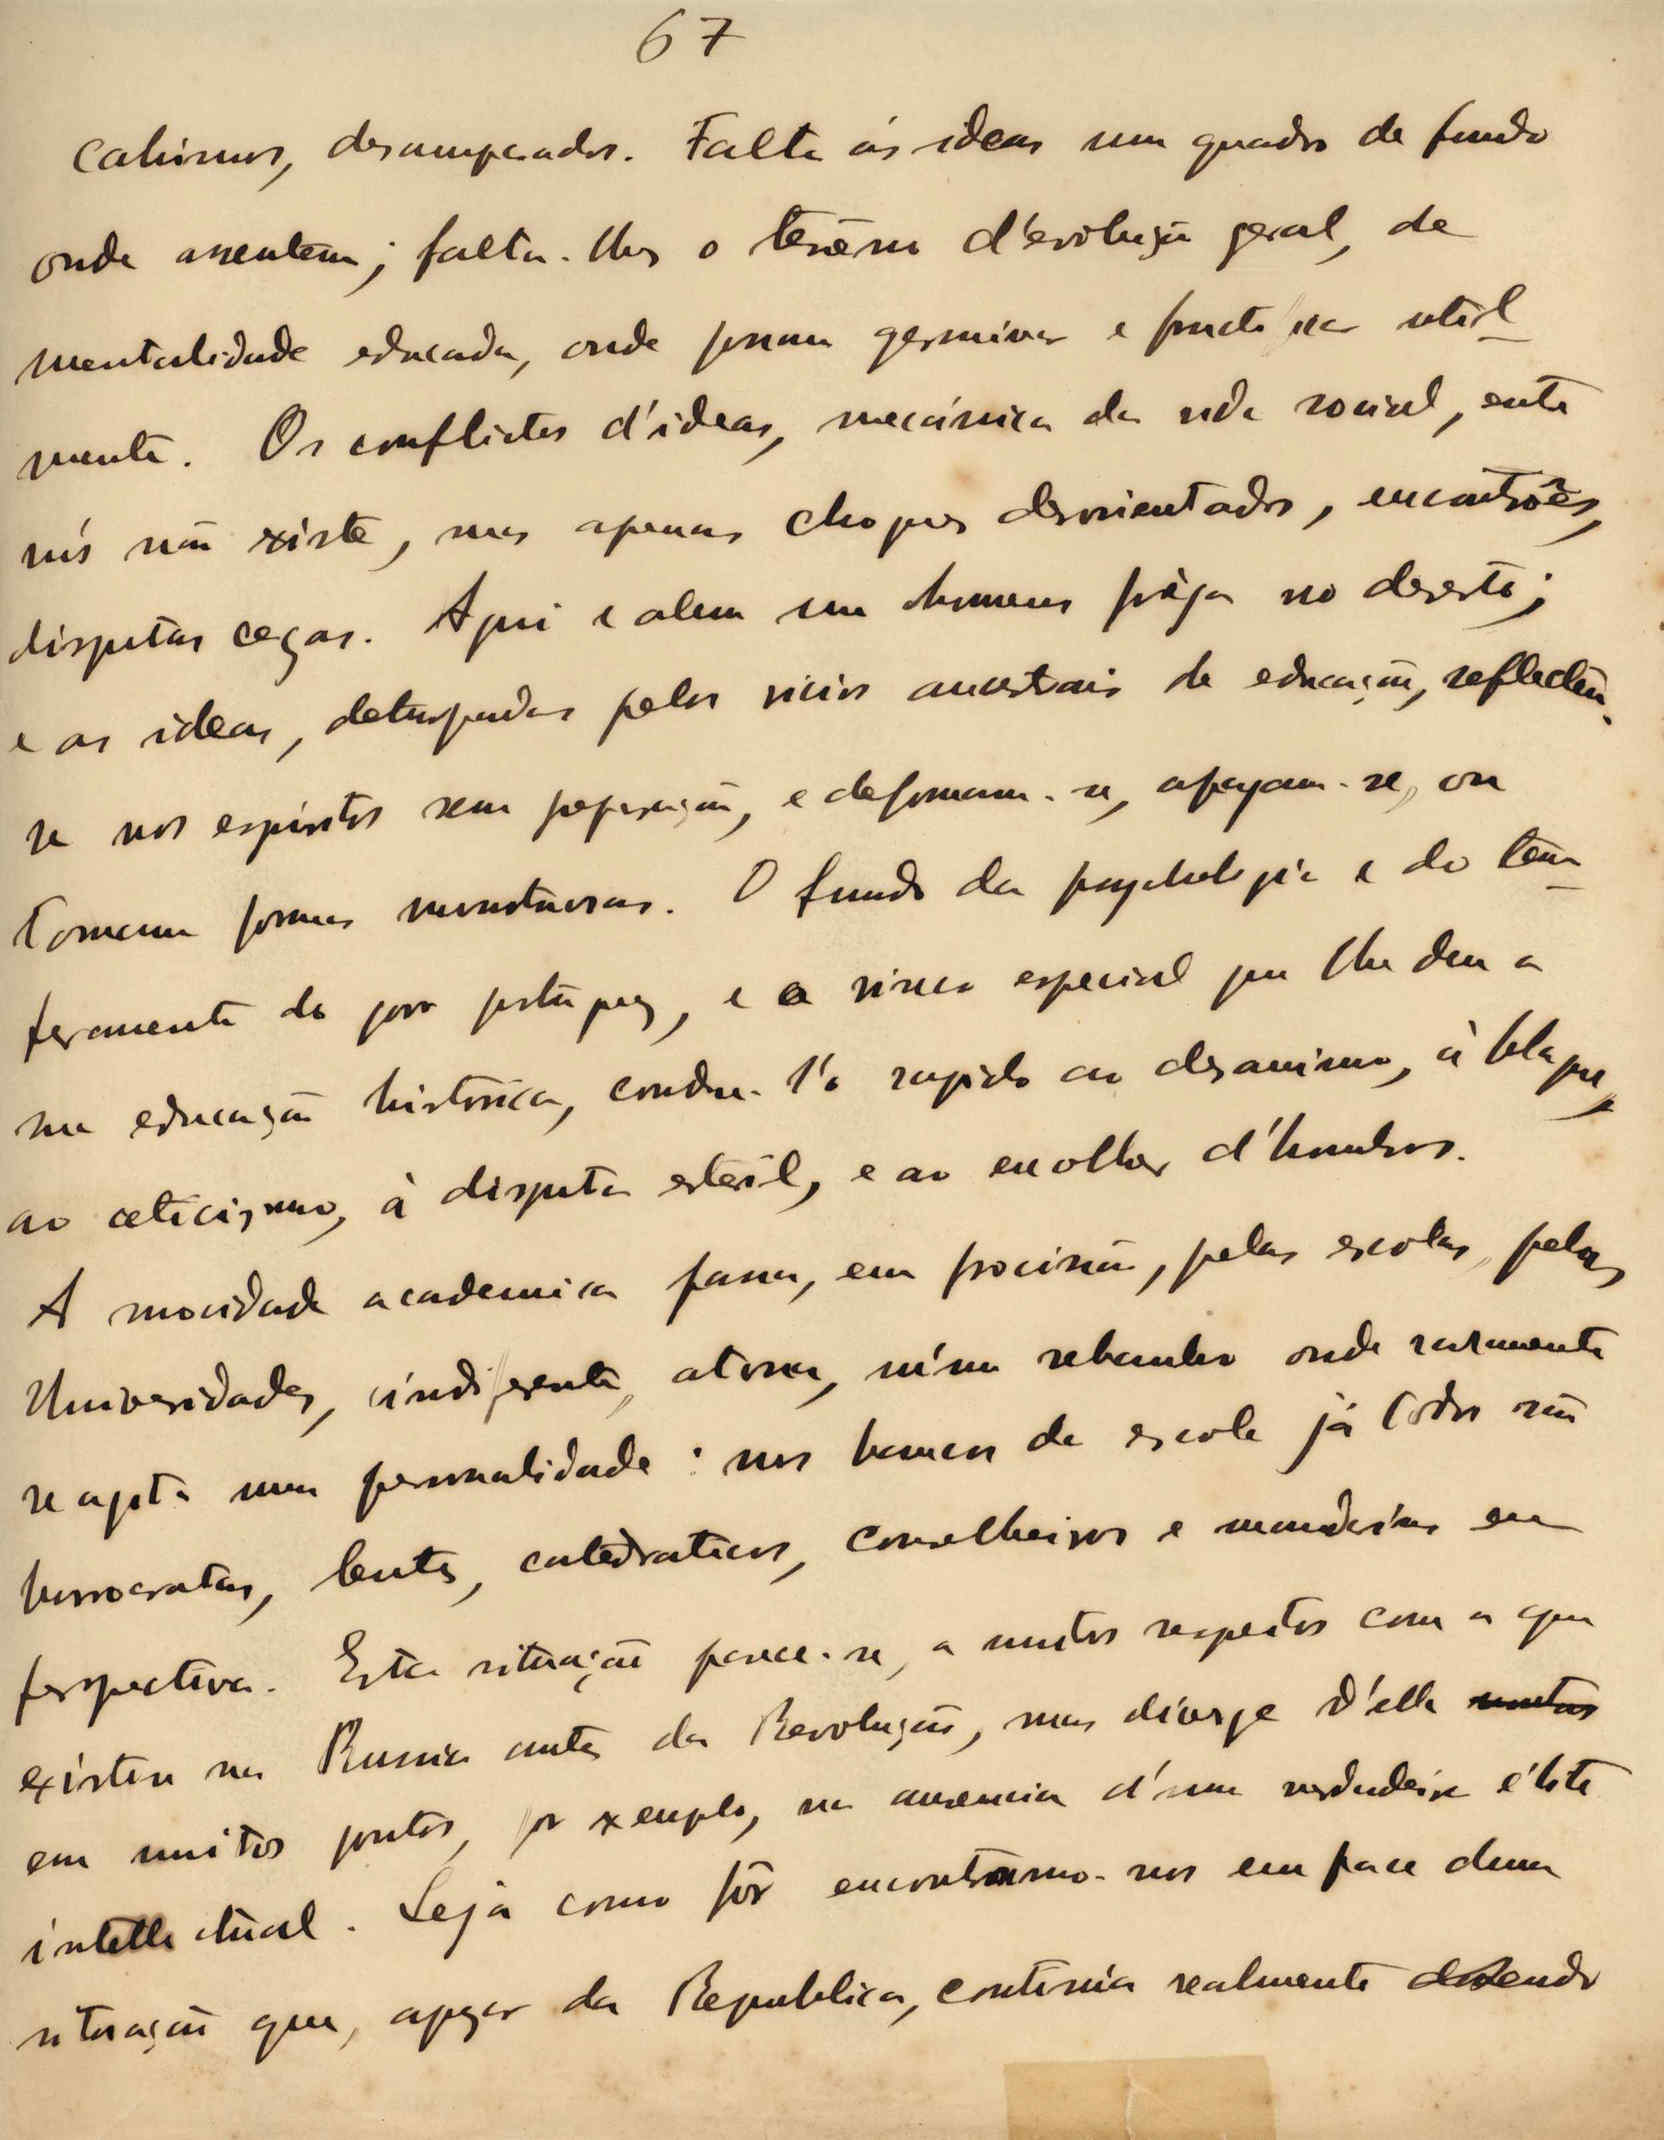 67
cahimos, desamparados. Falta ás ideas um quadro de fundo
onde assentem; falta-lhes o terreno d'evolução geral, de
mentalidade educada, onde possam germinar e fructificar util-
mente. Os conflictos d'ideas, mecánica da vida social, entre
nós não existe, mas apenas choques desorientados, encontrões,
disputas cegas. Aqui e alem um homem préga no deserto;
e as ideas, deturpadas pelos vicios ancestrais de educação, reflectem-
se nos espiritos sem preparação, e deformam-se, apagam-se, ou
tomam formas monstruosas. O fundo da psychologia e do tem-
peramento do povo portuguez, e o vinco especial que lhe deu a
sua educação historica, condu-l'o rapido ao desanimo, à blague,
ao ceticismo, à disputa esteril, e ao encolher d'hombros.
A mocidade academica passa, em procissão, pelas escolas, pelas
Universidades, indiferente, atona, n'um rebanho onde raramente
se agita uma personalidade: nos bancos da escola já todos são
burocratas, lentes, catedraticos, conselheiros e mandarins em
perspectiva. Esta situação parece-se, a muitos respeitos com a que
existiu na Russia antes da Revolução, mas diverge d'ella muitas
em muitos pontos, por exemplo, na ausencia d'uma verdadeira élite
intellectual. Seja como fôr encontramo-nos em face duma
situação que, apezar da Republica, continúa realmente dizendo